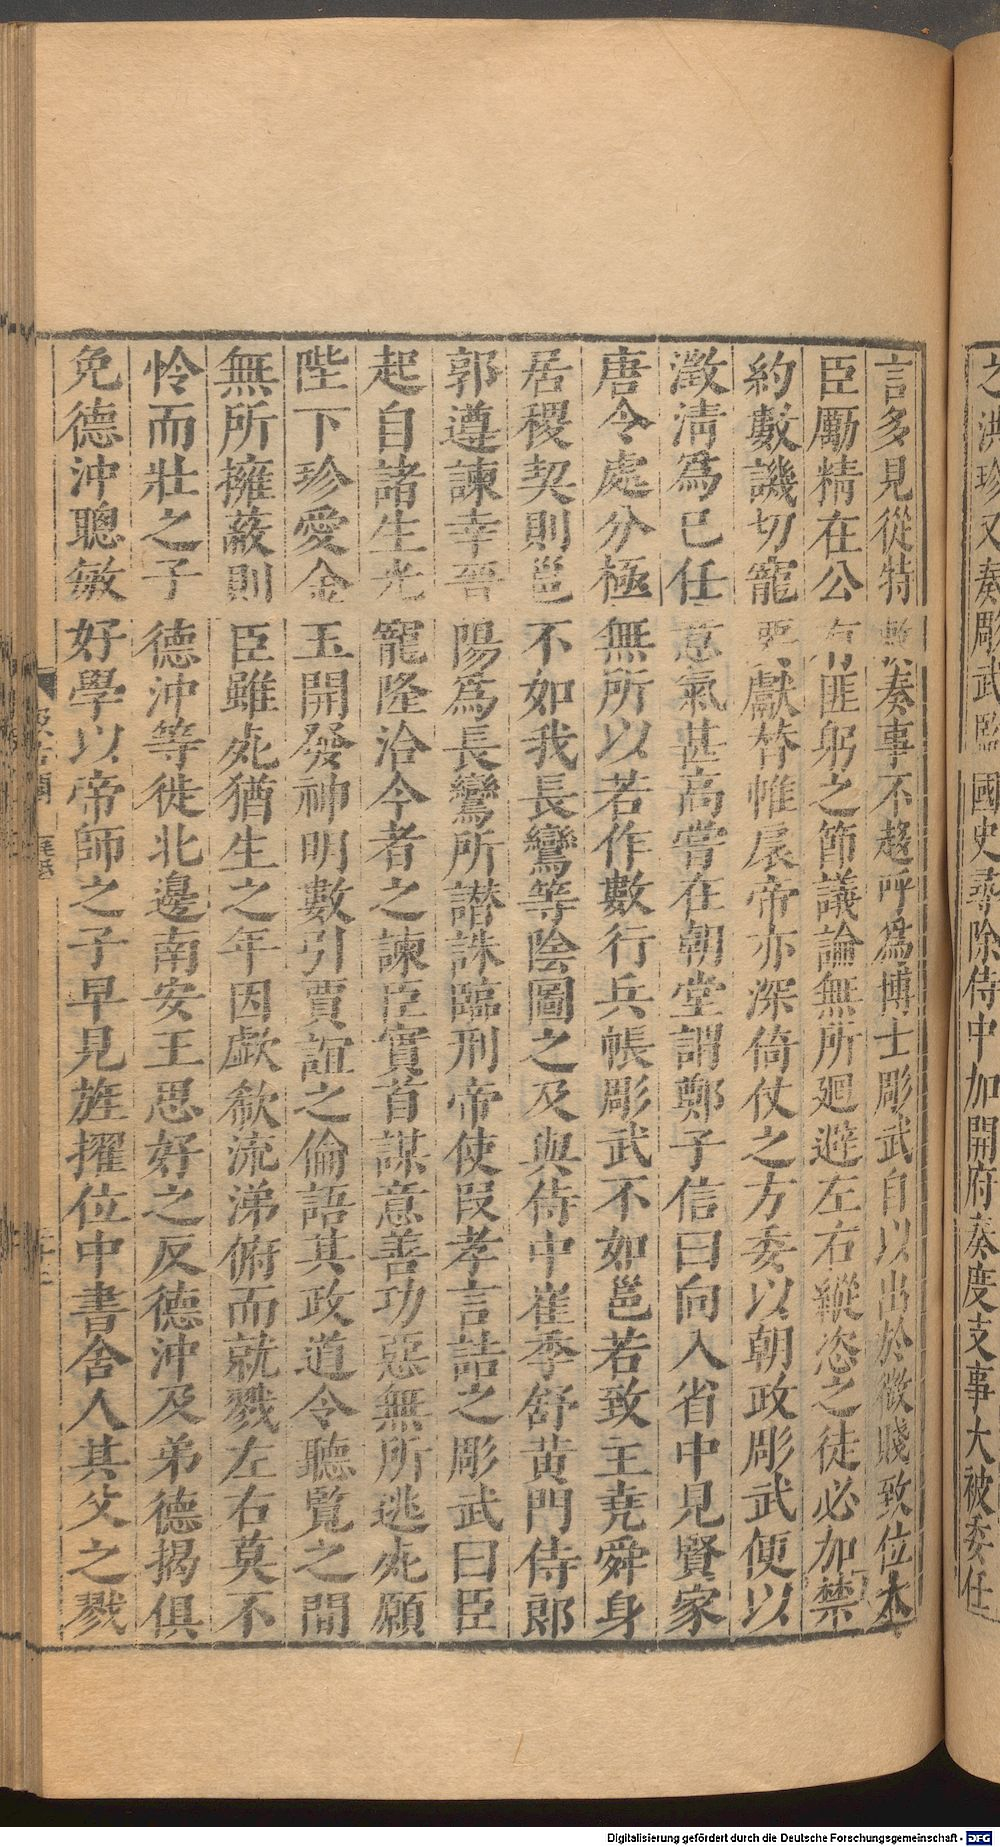 之洪珍又奏彫武監國史尋除侍中加開府奏度支事大被委任
言多見從特敕奏事不趍呼爲博士彫武自以出於微賤致位大
臣勵精在公有匪躬之節議論無所廻避左右縱恣之徒必加禁
約數譏切寵要獻替帷扆帝亦深倚仗之方委以朝政彫武便以
澂淸爲已任意氣甚高嘗在朝堂謂鄭子信曰向入省中見賢家
唐令處分極無所以若作數行兵帳彫武不如邕若致主堯舜身
居稷契則邕不如我長鸞等陰圖之及與侍中崔季舒黄門侍郎
郭遵諫幸晋陽爲長鸞所譖誅臨刑帝使段孝言詰之彫武曰臣
起自諸生光寵隆洽今者之諫臣實首謀意善功惡無所逃死願
陛下珍愛金玉開發神明數引賈誼之倫語其政道令聽覽之間
無所擁蔽則臣雖死猶生之年因歔欷流涕俯而就戮左右莫不
怜而壯之子德沖等徙北邊南安王思好之反德沖及弟德揭俱
免德沖聰敏好學以帝師之子早見旌擢位中書舍人其父之戮
汲古閣
Digitalisierung gefördert durch die Deutsche Forschungsgemeinschaft - DFG